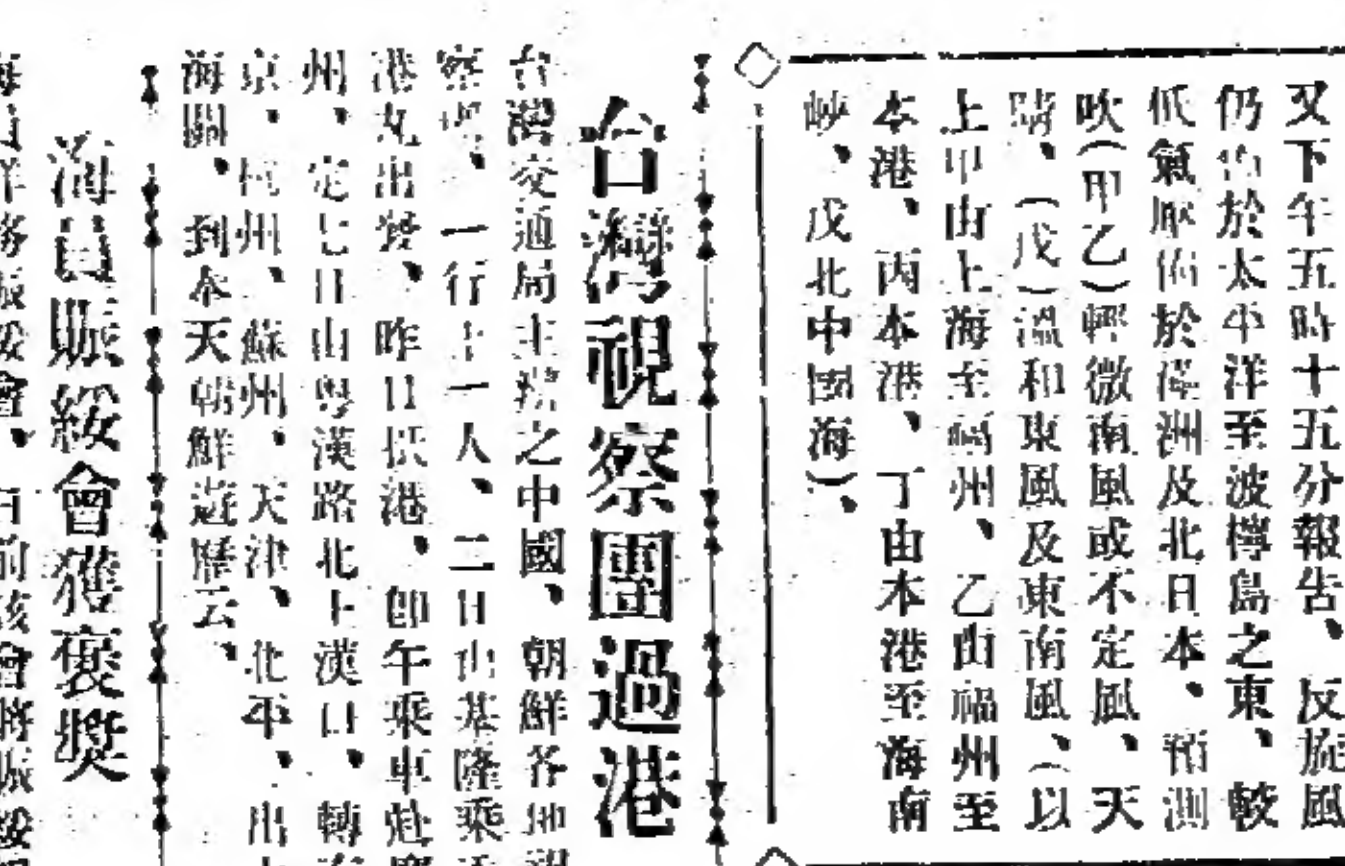 又下午五時十五分報告、反旋風
仍㣲於太平洋至波檸島之東、較
低氣壓佈於滿洲及北日本、預測
吹(甲乙)輕微南風或不定風、天
晴、(戊)溫和東風及東南風、(以
上甲由上海至福州、乙由福州至
本港、丙本港、丁由本港至海南
峽、戊北中國海)、
台灣視察團過港
台灣交通局主辦之中國、朝鮮各地視
察團、一行十一人、二日由基隆乘
港丸出發、昨日抵港、卽午乘車赴廣
州、定七日由粵漢路北上漢口、轉
京、杭州、蘇州、天津、北平、出
海關、到奉天朝鮮遊歷云、
海員賑綏會獲褒獎
海員洋務賑綏會、日前該會將賑綏